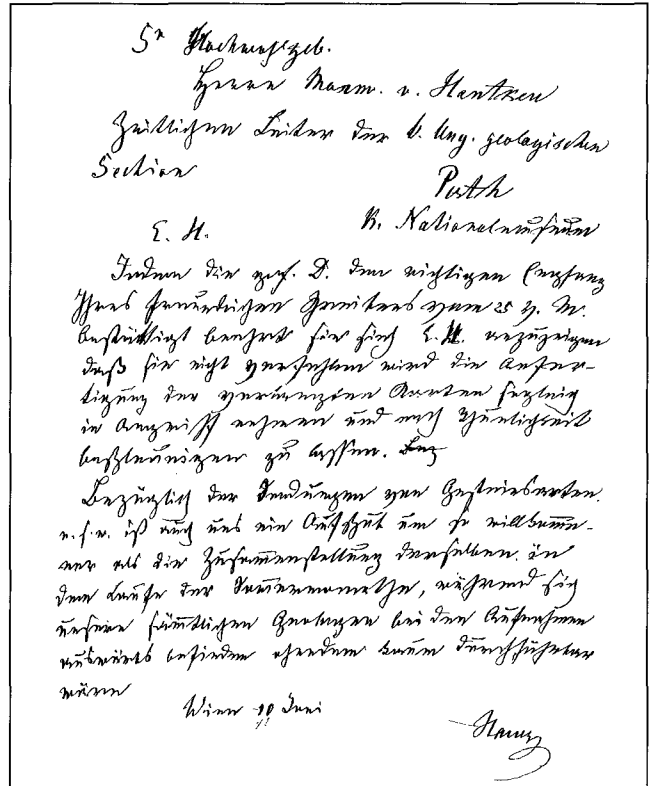 Sr Hochwohlgeb.
Herrn Maxm. v. Hantken
Zeitlichen Leiter der k. Ung. geologischen
Section
Pesth
K. Nationalmuseum
E. H.
Indem die gef. D. den richtigen Empfang
Ihres freundlichen Schreibens vom 25 v. M.
bestättigt beehrt sie sich E. H. anzuzeigen
daß sie nicht verfehlen wird die Anfer-
tigung der verlangten Karten sogleich
in Angriff nehmen und nach Thunlichkeit
beschleunigen zu lassen. Bez
Bezüglich der Sendungen von Gesteinsarten
u. s. w. ist auch uns ein Aufschub um so willkomme-
ner als die Zusammenstellung derselben in
dem Laufe der Sommermonathe, während sich
unsere sämmtlichen Geologen bei den Aufnahmen
auswärts befinden ohnedem kaum durchführbar
wäre
Wien Juni